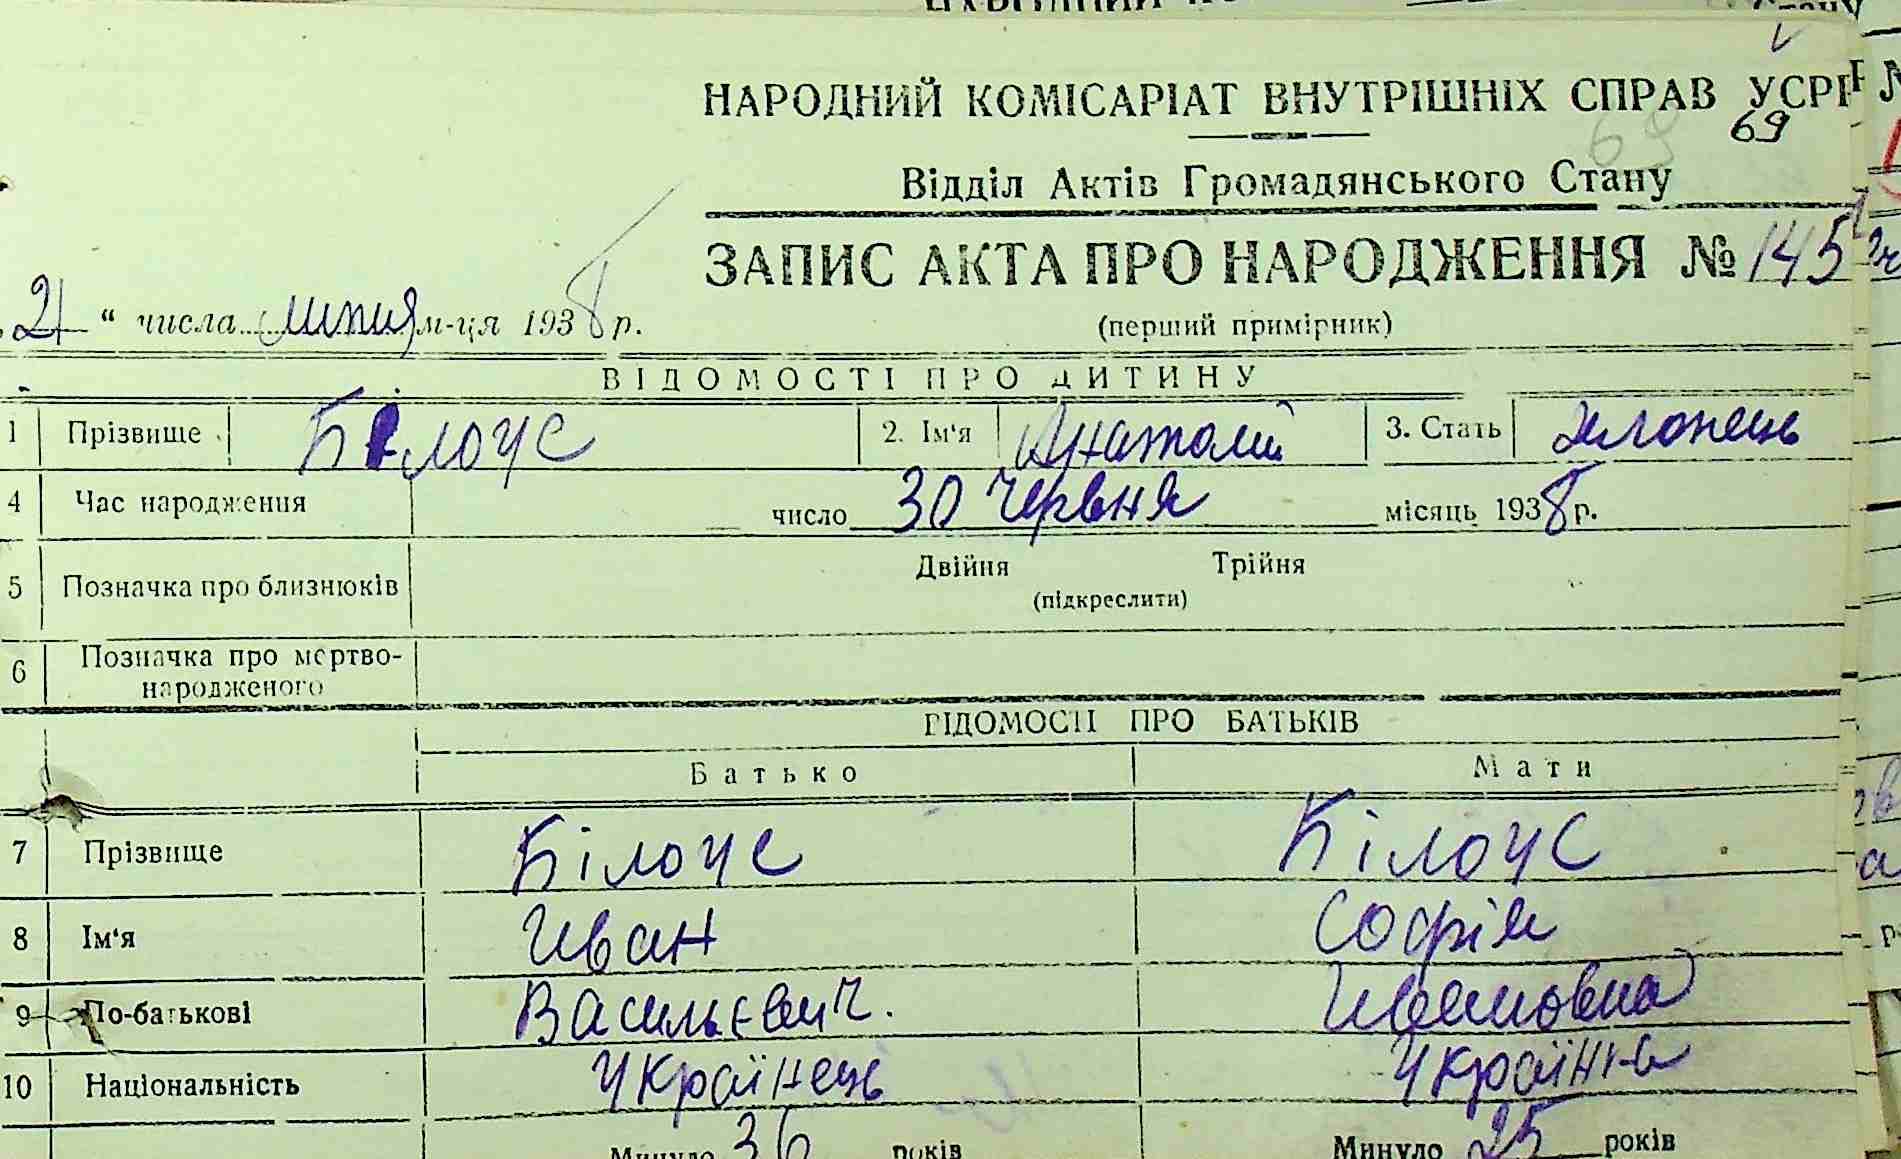 НАРОДНИЙ КОМІСАРІАТ ВНУТРІШНІХ СПРАВ УСРР
69
69
Відділ Актів Громадянського Стану
ЗАПИС АКТА ПРО НАРОДЖЕННЯ № 145
„21“ числа липня м-ця 1938 р.
(перший примірник)
ВІДОМОСТІ ПРО ДИТИНУ
1 Прізвище Білоус 2. Ім'я Анатолій 3. Стать хлопець
4 Час народження число 30 червня місяць 1938 р.
5 Позначка про близнюків Двійня Трійня
(підкреслити)
6 Позначка про мертво-
народженого
ВІДОМОСТІ ПРО БАТЬКІВ
Батько Мати
7 Прізвище Білоус Білоус
8 Ім'я Иван Софія
9 По-батькові Васильєвич. Ивановна
10 Національність Українець Українка
Минуло 36 років Минуло 25 років